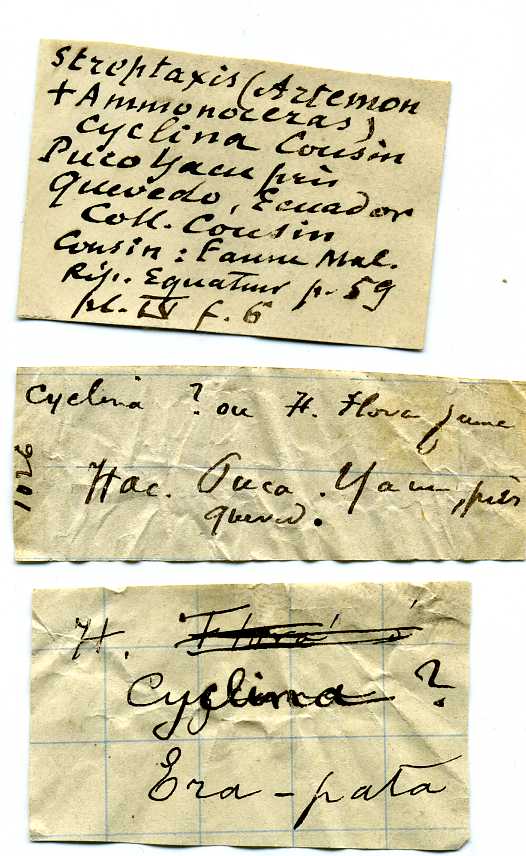 Streptaxis (Artemon
+ Ammonoceras)
cyclina Cousin
Puco Yacu près
Quevedo, Ecuador
Coll. Cousin
Cousin: Faune Mal.
Rép. Equateur p. 59
pl. IV f. 6
Cyclina ? ou H. Flora jeune
1026
Hac. Puca. Yacu, près
Queved.
H.
Cyclina ?
Era - pata